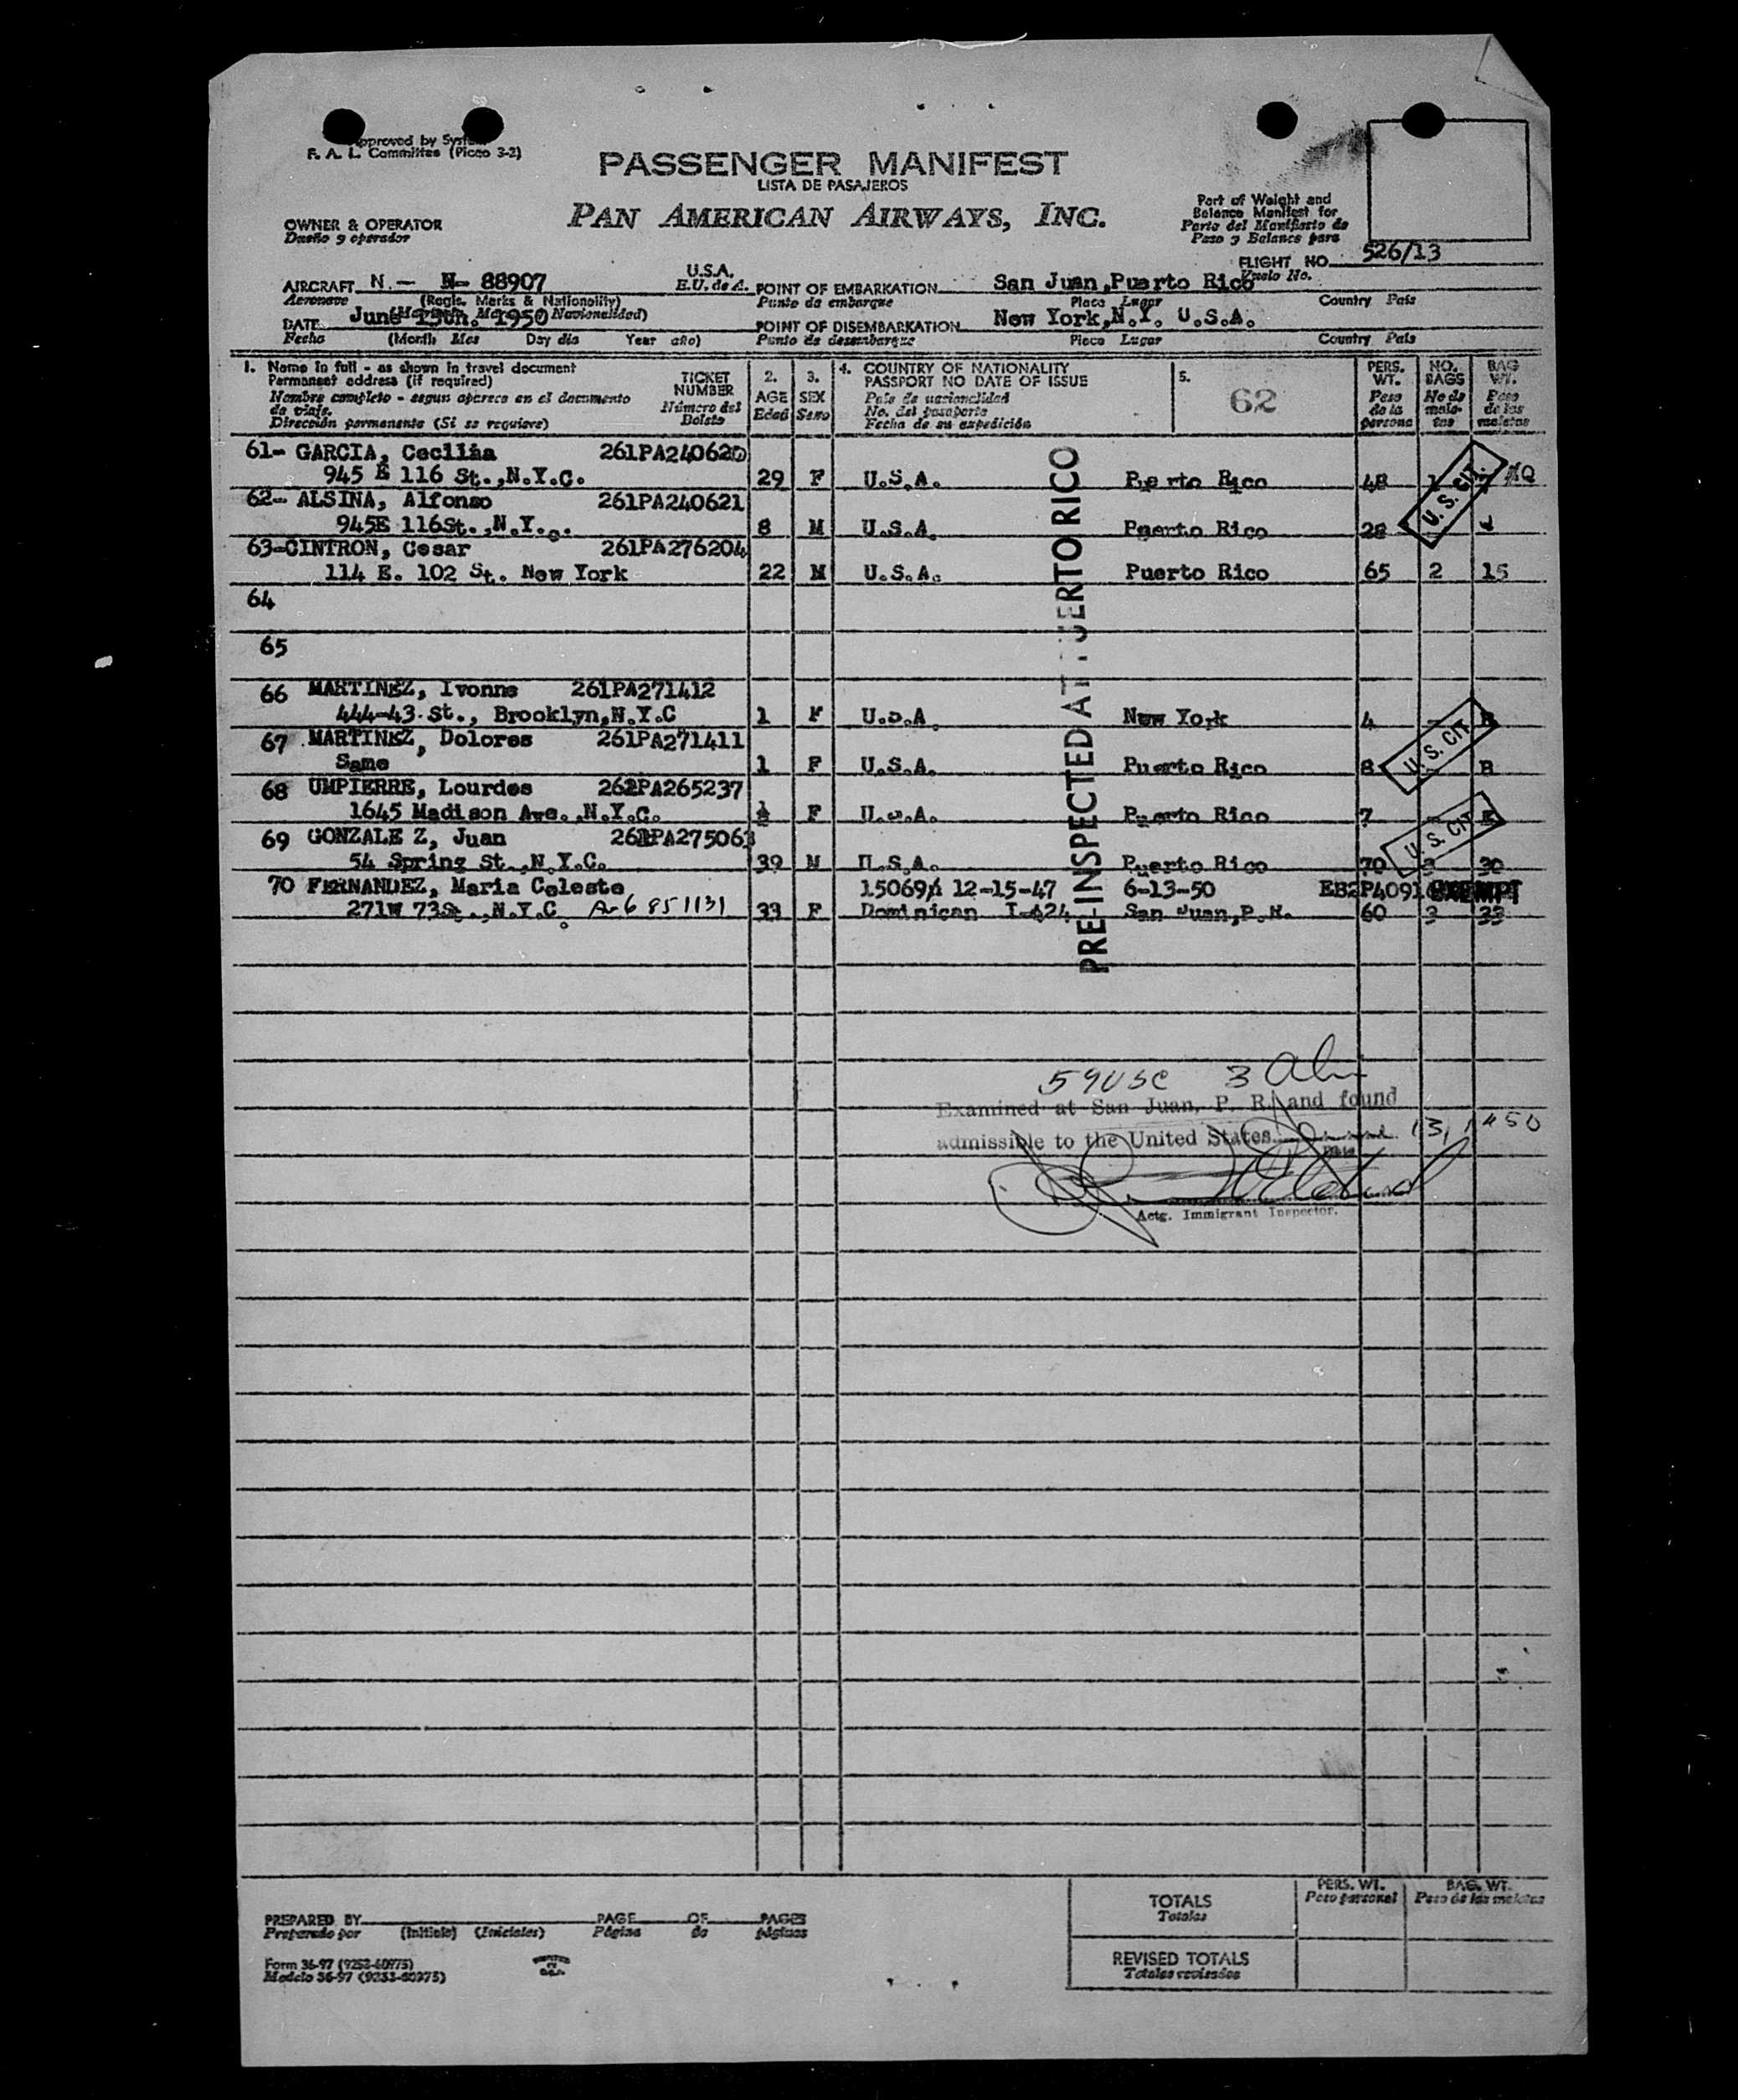 Approved by System
F. A. L. Committee (Picao 3-2)
PASSENGER MANIFEST
LISTA DE PASAJEROS
PAN AMERICAN AIRWAYS, INC.
OWNER & OPERATOR
Dueño y operador
Part of Weight and
Balance Manifest for
Parte del Manifiesto de
Peso y Balance para
FLIGHT NO. 526/13
Vuelo No.
AIRCRAFT N.- N- 88907 U.S.A.
Aeronave (Regis. Marks & Nationality) E.U. de A.
POINT OF EMBARKATION San Juan,Puerto Rico
Punto de embarque Place Lugar Country País
DATE June 13th. 1950
Fecha (Month Mes Day día Year año)
POINT OF DISEMBARKATION New York,N.Y. U.S.A.
Punto de desembarque Place Lugar Country País
1. Name in full - as shown in travel document
Permanent address (if required)
Nombre completo - segun aparece en el documento
de viaje.
Dirección permanente (Si se requiere)
TICKET
NUMBER
Número del
Boleto
2.
AGE
Edad
3.
SEX
Sexo
4. COUNTRY OF NATIONALITY
PASSPORT NO DATE OF ISSUE
País de nacionalidad
No. del pasaporte
Fecha de su expedición
5.
62
PERS.
WT.
Peso
de la
persona
NO.
BAGS
No de
male-
tas
BAG
WT.
Peso
de las
maletas
61- GARCIA, Cecilia 261PA240620
945 E 116 St.,N.Y.C. 29 F U.S.A. Puerto Rico 48
62- ALSINA, Alfonso 261PA240621
945E 116St.,N.Y.. 8 M U.S.A. Puerto Rico 28
U. S. CIT.
63-CINTRON, Cesar 261PA276204
114 E. 102 St. New York 22 M U.S.A. Puerto Rico 65 2 15
64
65
66 MARTINEZ, Ivonne 261PA271412
444-43 St., Brooklyn,N.Y.C 1 F U.S.A. New York 4
67 MARTINEZ, Dolores 261PA271411
Same 1 F U.S.A. Puerto Rico 8 B
U. S. CIT.
68 UMPIERRE, Lourdes 262PA265237
1645 Madison Ave.,N.Y.C. F U.S.A. Puerto Rico 7
69 GONZALE Z, Juan
54 Spring St.,N.Y.C. 39 M U.S.A. Puerto Rico 70 30
U. S. CIT
70 FERNANDEZ, Maria Celeste 12-15-47 6-13-50 EXEMPT
271W 73St.,N.Y.C. A-6 851131 33 F Dominican San Juan,P.R. 60 3 33
PRE-INSPECTED AT PUERTO RICO
59 USC 3 Aln
Examined at San Juan, P. R. and found
admissible to the United States 13, 1950
Date
Actg. Immigrant Inspector.
PREPARED BY PAGE OF PAGES
Preparado por (Initials) (Iniciales) Página de páginas
Form 36-97 (9253-60975)
Modelo 36-97 (9253-60975)
TOTALS
Totales
PERS. WT.
Peso personal
BAG. WT.
Peso de las maletas
REVISED TOTALS
Totales revisados